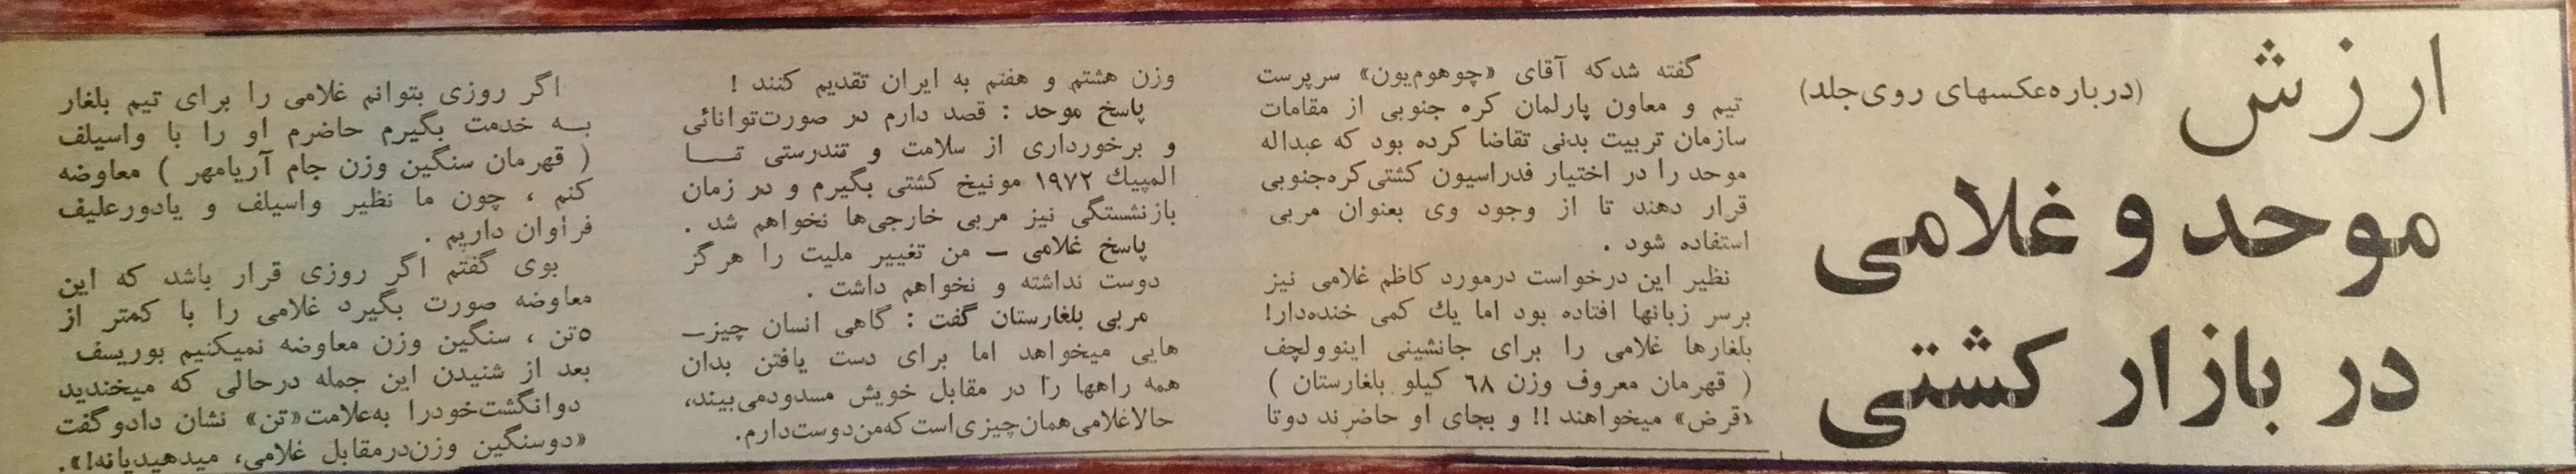 ارزش
(درباره‌عکسهای روی‌جلد)
موحد و غلامی
در بازار کشتی
گفته شدکه آقای «چوهوم‌یون» سرپرست
تیم و معاون پارلمان کره جنوبی از مقامات
سازمان تربیت بدنی تقاضا کرده بود که عبداله
موحد را در اختیار فدراسیون کشتی کره‌جنوبی
قرار دهند تا از وجود وی بعنوان مربی
استفاده شود .
نظیر این درخواست درمورد کاظم غلامی نیز
برسر زبانها افتاده بود اما یك کمی خنده‌دار!
بلغارها غلامی را برای جانشینی اینوولچف
( قهرمان معروف وزن ٦٨ کیلو بلغارستان )
«قرض» میخواهند !! و بجای او حاضرند دوتا
وزن هشتم و هفتم به ایران تقدیم کنند !
پاسخ موحد : قصد دارم در صورت‌توانائی
و برخورداری از سلامت و تندرستی تــا
المپیك ۱۹۷۲ مونیخ کشتی بگیرم و در زمان
بازنشستگی نیز مربی خارجی‌ها نخواهم شد .
پاسخ غلامی — من تغییر ملیت را هرگز
دوست نداشته و نخواهم داشت .
مربی بلغارستان گفت : گاهی انسان چیز—
هایی میخواهد اما برای دست یافتن بدان
همه راهها را در مقابل خویش مسدودمی‌بیند،
حالاغلامی‌همان‌چیزی‌است‌که‌من‌دوست‌دارم.
اگر روزی بتوانم غلامی را برای تیم بلغار
بــه خدمت بگیرم حاضرم او را با واسیلف
( قهرمان سنگین وزن جام آریامهر ) معاوضه
کنم ، چون ما نظیر واسیلف و یادورعلیف
فراوان داریم .
بوی گفتم اگر روزی قرار باشد که این
معاوضه صورت بگیرد غلامی را با کمتر از
۵تن ، سنگین وزن معاوضه نمیکنیم بوریسف
بعد از شنیدن این جمله درحالی که میخندید
دوانگشت‌خودرا به‌علامت«تن» نشان دادو گفت
«دوسنگین وزن‌درمقابل غلامی، میدهیدیانه!».